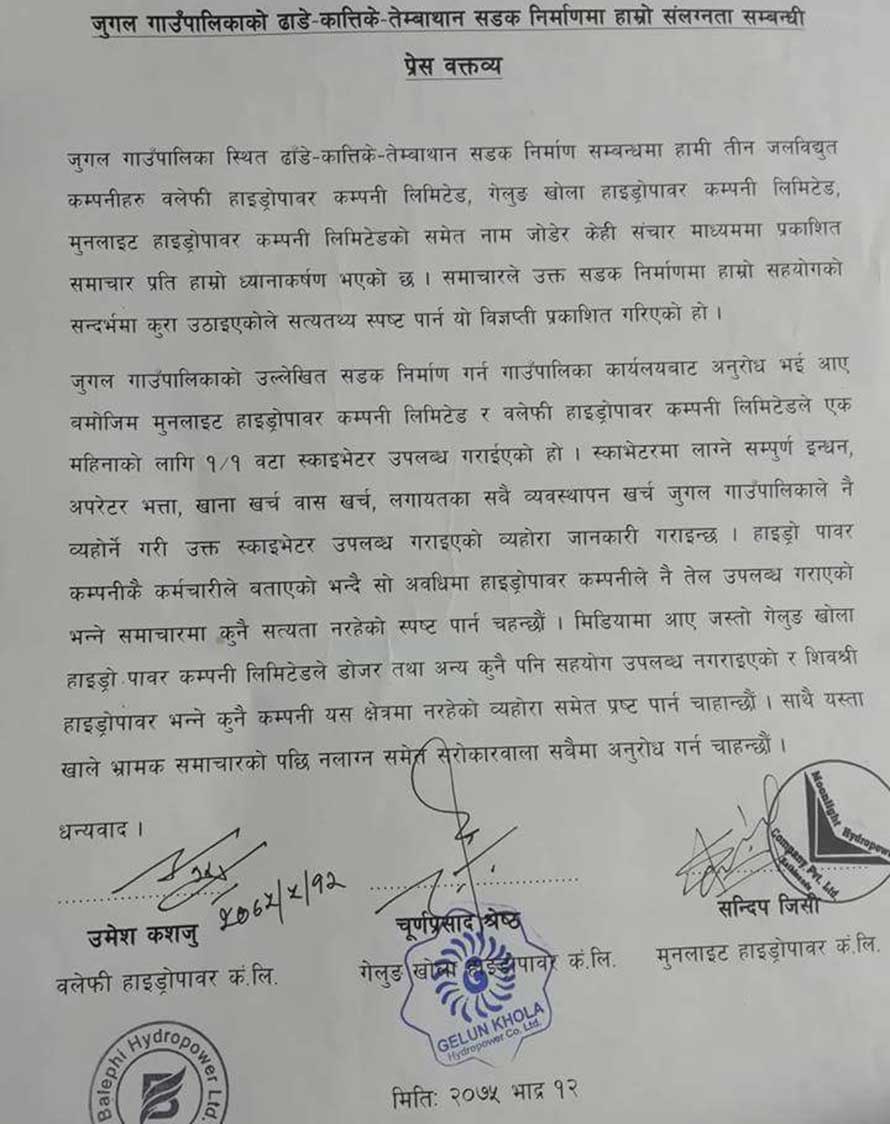 जुगल गाउँपालिकाको ढाडे-कात्तिके-तेम्बाथान सडक निर्माणमा हाम्रो संलग्नता सम्बन्धी
प्रेस वक्तव्य
जुगल गाउँपालिका स्थित ढाँडे-कात्तिके-तेम्बाथान सडक निर्माण सम्बन्धमा हामी तीन जलविद्युत
कम्पनीहरु वलेफी हाइड्रोपावर कम्पनी लिमिटेड, गेलुङ खोला हाइड्रोपावर कम्पनी लिमिटेड,
मुनलाइट हाइड्रोपावर कम्पनी लिमिटेडको समेत नाम जोडेर केही संचार माध्यममा प्रकाशित
समाचार प्रति हाम्रो ध्यानाकर्षण भएको छ । समाचारले उक्त सडक निर्माणमा हाम्रो सहयोगको
सन्दर्भमा कुरा उठाइएकोले सत्यतथ्य स्पष्ट पार्न यो विज्ञप्ती प्रकाशित गरिएको हो ।
जुगल गाउँपालिकाको उल्लेखित सडक निर्माण गर्न गाउँपालिका कार्यलयबाट अनुरोध भई आए
वमोजिम मुनलाइट हाइड्रोपावर कम्पनी लिमिटेड र वलेफी हाइड्रोपावर कम्पनी लिमिटेडले एक
महिनाको लागि १/१ वटा स्काइभेटर उपलब्ध गराईएको हो । स्काभेटरमा लाग्ने सम्पुर्ण इन्धन,
अपरेटर भत्ता, खाना खर्च वास खर्च, लगायतका सवै व्यवस्थापन खर्च जुगल गाउँपालिकाले नै
व्यहोर्ने गरी उक्त स्काइभेटर उपलब्ध गराइएको व्यहोरा जानकारी गराइन्छ । हाइड्रो पावर
कम्पनीकै कर्मचारीले बताएको भन्दै सो अवधिमा हाइड्रोपावर कम्पनीले नै तेल उपलब्ध गराएको
भन्ने समाचारमा कुनै सत्यता नरहेको स्पष्ट पार्न चहन्छौं । मिडियामा आए जस्तो गेलुङ खोला
हाइड्रो पावर कम्पनी लिमिटेडले डोजर तथा अन्य कुनै पनि सहयोग उपलब्ध नगराइएको र शिवश्री
हाइड्रोपावर भन्ने कुनै कम्पनी यस क्षेत्रमा नरहेको व्यहोरा समेत प्रष्ट पार्न चाहान्छौं । साथै यस्ता
खाले भ्रामक समाचारको पछि नलाग्न समेत सरोकारवाला सवैमा अनुरोध गर्न चाहन्छौं ।
धन्यवाद ।
२०७५/५/१२
उमेश कशजु
वलेफी हाइड्रोपावर कं.लि.
Balephi Hydropower Ltd.
चूर्णप्रसाद श्रेष्ठ
गेलुङ खोला हाइड्रोपावर कं.लि.
GELUN KHOLA
Hydropower Co. Ltd.
Moonlight Hydropower
Company Pvt. Ltd.
सन्दिप जिसी
मुनलाइट हाइड्रोपावर कं.लि.
मिति: २०७५ भाद्र १२